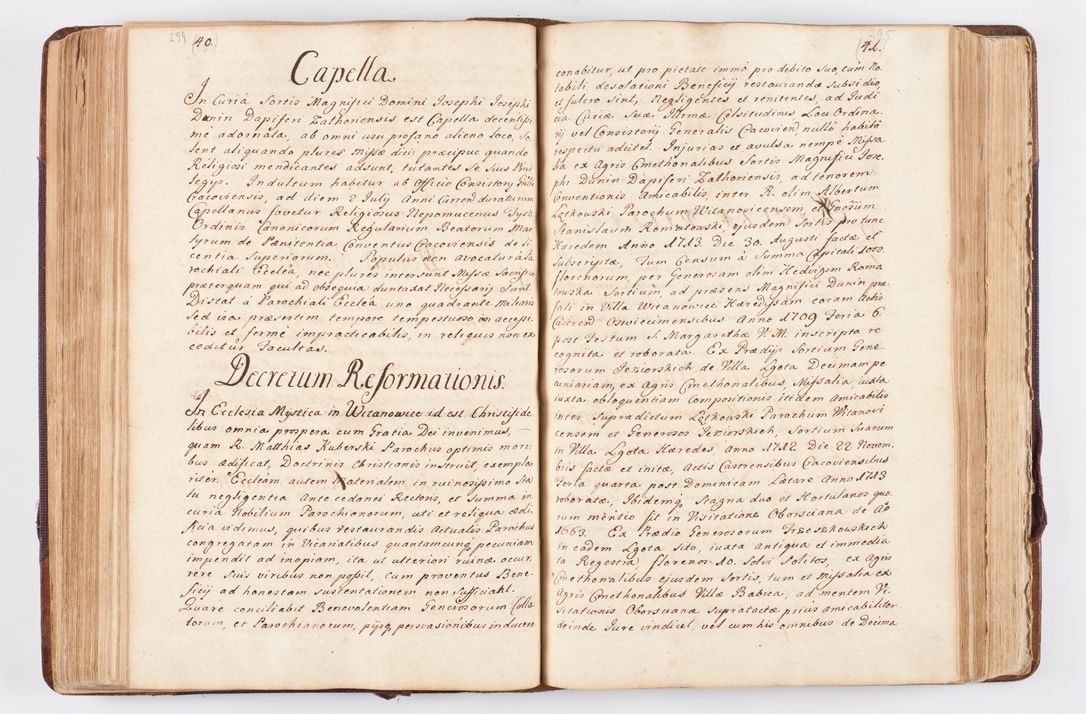 294 (40.)
Capella.
In Curia Sortis Magnifici Domini Josephi Josephi
Dunin Dapiferi Zathoriensis est Capella decentissi,
mè adornata, ab omni usu profano alieno loco, so,
lent aliquando plures Missæ dici præcipue quando
Religiosi mendicantes adsunt, tutantes se suis Privi
legijs. Indultum habetur ab Officio Consistory Gnlis
Cracoviensis, ad diem 2 July Anni Curren̄ duraturum
Capellanus fovetur Religiosus Nepomucenus
Ordinis Canonicorum Regularium Beatorum Mar,
tyrum de Pænitentia Conventus Cracoviensis de li,
centia Superiorum. Populus non avocatur à Pa
rochiali Ecclēa, nec plures intersunt Missæ Sacrificio
præterquam qui ad obsequia duntaxat Necessarij sunt.
Distat à Parochiali Ecclēa uno quadrante miliaris
sed via præsertim tempore tempestuoso in accessi
bilis et fermè impracticabilis, in reliquis non ex
ceditur Facultas.
Decretum Reformationis.
In Ecclesia Mystica in Witanowice id est Christifide
libus omnia prospera cum Gratia Dei invenimus,
quam R. Matthias Kuberski Parochus optimis mori
bus ædificat, Doctrinis Christianis instruit, exempla
riter. Ecclēam autem Materialem in ruinosissimo sta
tu negligentia Ante cedanei Rectoris, et summa in
curia Nobilium Parochianorum, uti et reliqua ædi
ficia vidimus, quibus restaurandis Actualis Parochus
congregatam in Vicariatibus quantamcunq̄ pecuniam
impendit ad inopiam, ita ut ulteriori ruinæ occur,
rere suis viribus non possit, cum proventus Bene-
ficij ad honestam sustentationem non sufficiant.
Quare conciliabit Benevolentiam Generosorum Colla
torum, et Parochianorum, pijsq̄ persvasionibus inducere
295 (41.)
conabitur, ut pro pietate immò pro debito suo, tam no
tabili desolationi Beneficij restaurandæ subsidio,
et fulcro sint, Negligentes et renitentes, ad Judi
cia Curiæ Suæ Illrmæ Celsitudinis Loci Ordina,
rij vel Consistorij Generalis Cracovien̄ nullô habitô
respectu adcitet. Injurias et avulsa nempè Missa
lia ex Agris Cmethonalibus Sortis Magnifici Jose,
phi Dunin Dapiferi Zathoriensis, ad tenorem
Conventionis Amicabilis, inter R. olim Albertum
Letkowski Parochum Witanovicensem et Gnosum
Stanislaum Romatowski, ejusdem Sortis pro tunc
Hæredem Anno 1713. Die 30. Augusti factæ et
subscriptæ, Tum Censum à Summa Capitali 1000.
florenorum, per Generosam olim Hedvigim Roma
towska Sortium, ad præsens Magnifici Dunin præ,
fati in Villa Witanowice Hæredissam coram Actis
Castren̄ Oswiecimensibus Anno 1709 Feria 6.
post Festum S. Margarethæ V. M. inscripta re
cognita et roborata. Ex Prædijs Sortium Gene,
rosorum Jeziorskich de Villa Lgota Decimam pe
cuniariam, ex Agris Cmethonalibus, Missalia iuxta
iuxta obloquentiam Compositionis itidem Amicabilis
inter supradictum Letkowski Parochum Witanovi
censem et Generosos Jeziorskich, Sortium suarum
in Villa Lgota Hæredes, Anno 1712 Die 22 Novem,
bris factæ et initæ, Actis Castrensibus Cracoviensibus
Feria quarta post Dominicam Lætare Anno 1713
roboratæ, Ibidemq̄ Stagna duo et Hortulanos quo,
rum mentio fit in Visitatione Oborsciana de Aō
1663. Ex Prædio Generosorum Trzeszkowskich
in eadem Lgota sito, iuxta antiqua et immedia
ta Regestra, florenos 10. solvi solitos, ex Agris
Cmethonalibus ejusdem Sortis, tum et missalia ex
Agris Cmethonalibus Villæ Babica, ad mentem Vi,
sitationis Oborscianæ supratactæ prius amicabiliter
deinde Jure vindicet, vel cum his omnibus de Decima